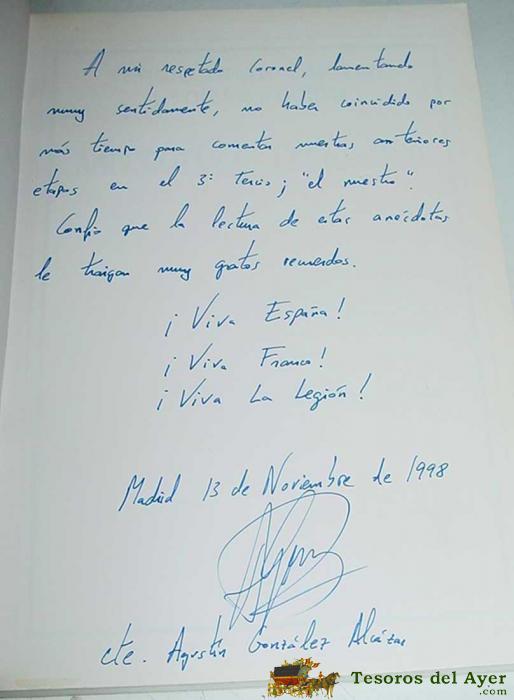 A mi respetado Coronel, lamentando
muy sentidamente, no haber coincidido por
más tiempo para comentar nuestras anteriores
etapas en el 3º Tercio; "el nuestro".
Confío que la lectura de estas anécdotas
le traigan muy gratos recuerdos.
¡Viva España!
¡Viva Franco!
¡Viva La Legión!
Madrid 13 de Noviembre de 1998
cte. Agustín González Alcázar
Tesoros del Ayer
.com